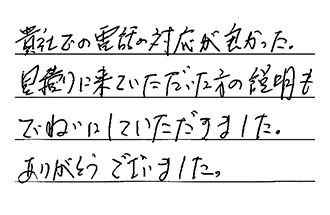 貴社での電話の対応が良かった。
見積りに来ていただいた方の説明も
ていねいにしていただきました。
ありがとうございました。